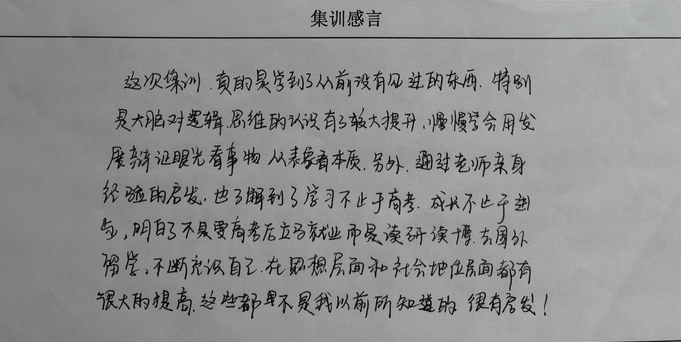 集训感言
这次集训,真的是学到了从前没有见过的东西.特别
是大脑对逻辑、思维的认识有了较大提升,慢慢学会用发
展辩证眼光看事物 从表象看本质.另外.通过老师亲身
经验的启发,也了解到了学习不止于高考.成长不止于
,明白了不是要高考后立马就业而是读研读博.去国外
留学,不断充识自己.在思想层面和社会地位层面都有
很大的提高.这些都是不是我以前所知道的 很有启发!